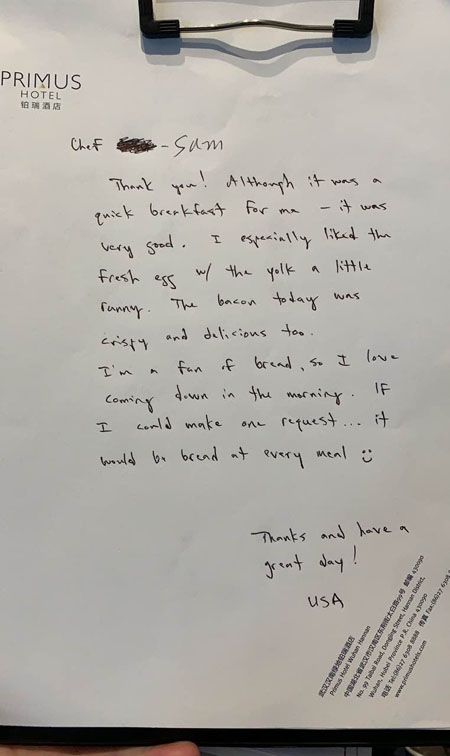 PRIMUS
HOTEL
铂瑞酒店
Chef - Sam
Thank you! Although it was a
quick breakfast for me - it was
very good. I especially liked the
fresh egg w/ the yolk a little
runny. The bacon today was
crispy and delicious too.
I'm a fan of bread, so I love
coming down in the morning. If
I could make one request... it
would be bread at every meal :)
Thanks and have a
great day!
USA
武汉汉南绿地铂瑞酒店
Primus Hotel Wuhan Hannan
中国湖北省武汉市汉南区东荆街太白路99号 邮编 430090
No. 99 Taibai Road, Dongjing Street, Hannan District,
Wuhan, Hubei Province P.R. China 430090
电话 Tel:(86)27 6308 8888 传真 Fax:(86)27 6308
www.primushotels.com